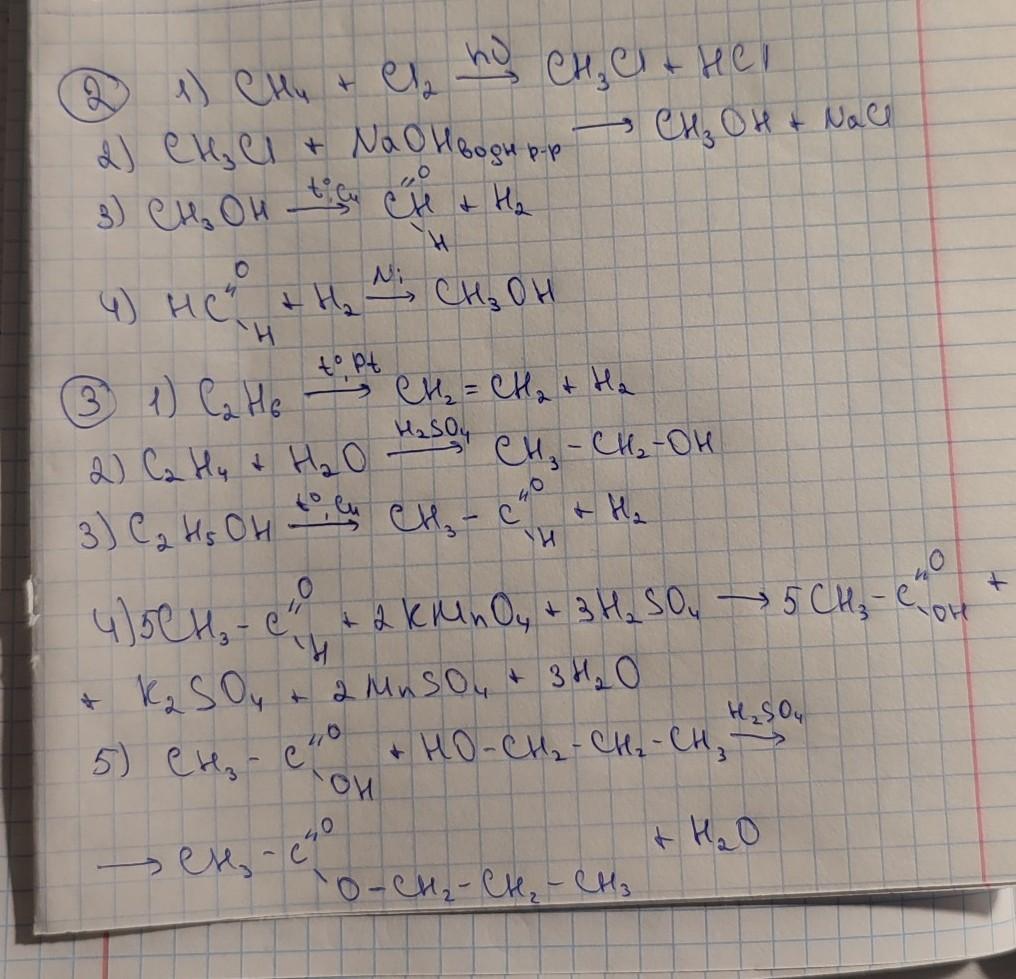 ② 1) CH₄ + Cl₂ —hν→ CH₃Cl + HCl
2) CH₃Cl + NaOH водн р-р → CH₃OH + NaCl
3) CH₃OH —t°, Cu→ CH(=O)(-H) + H₂
4) HC(=O)(-H) + H₂ —Ni→ CH₃OH
③ 1) C₂H₆ —t°, Pt→ CH₂=CH₂ + H₂
2) C₂H₄ + H₂O —H₂SO₄→ CH₃-CH₂-OH
3) C₂H₅OH —t°, Cu→ CH₃-C(=O)(-H) + H₂
4) 5CH₃-C(=O)(-H) + 2KMnO₄ + 3H₂SO₄ → 5CH₃-C(=O)(-OH) +
+ K₂SO₄ + 2MnSO₄ + 3H₂O
5) CH₃-C(=O)(-OH) + HO-CH₂-CH₂-CH₃ —H₂SO₄→
→ CH₃-C(=O)(-O-CH₂-CH₂-CH₃) + H₂O